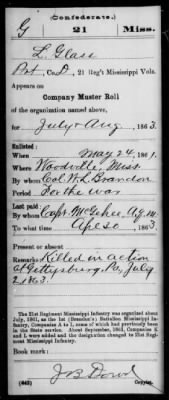 (Confederate.)
G 21 Miss.
L. Glass
Pvt, Co. D, 21 Reg't Mississippi Vols.
Appears on
Company Muster Roll
of the organization named above,
for July & Aug, 1863.
Enlisted:
When May 24, 1861.
Where Woodville, Miss
By whom Col. W. L. Brandon
Period For the war
Last paid:
By whom Capt. McGehee, A.Q.M.
To what time Ap'l 30, 1863.
Present or absent
Remarks: Killed in action
at Gettysburg, Pa, July
2, 1863.
The 21st Regiment Mississippi Infantry was organized about
July, 1861, as the 1st (Brandon's) Battalion Mississippi In-
fantry, Companies A to I, some of which had previously been
in the State service. About September, 1861, Companies K
and L were added and the designation changed to 21st Reg-
iment Mississippi Infantry.
Book mark:
J B Dowd
(642) Copyist.